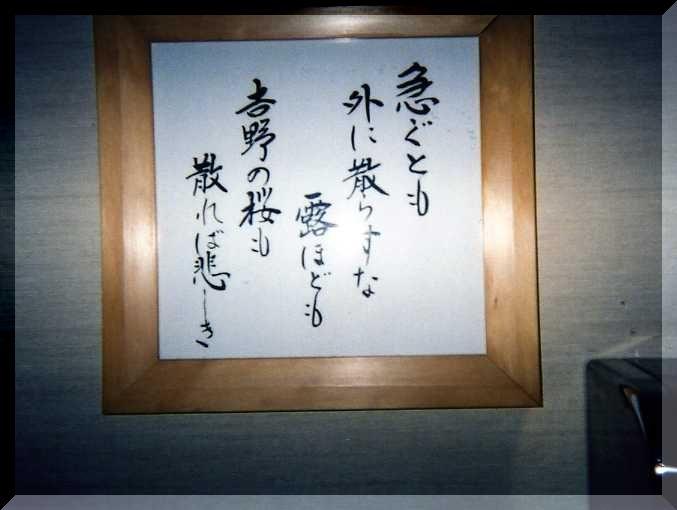 急ぐとも
外に散らすな
露ほども
吉野の桜も
散れば悲しき